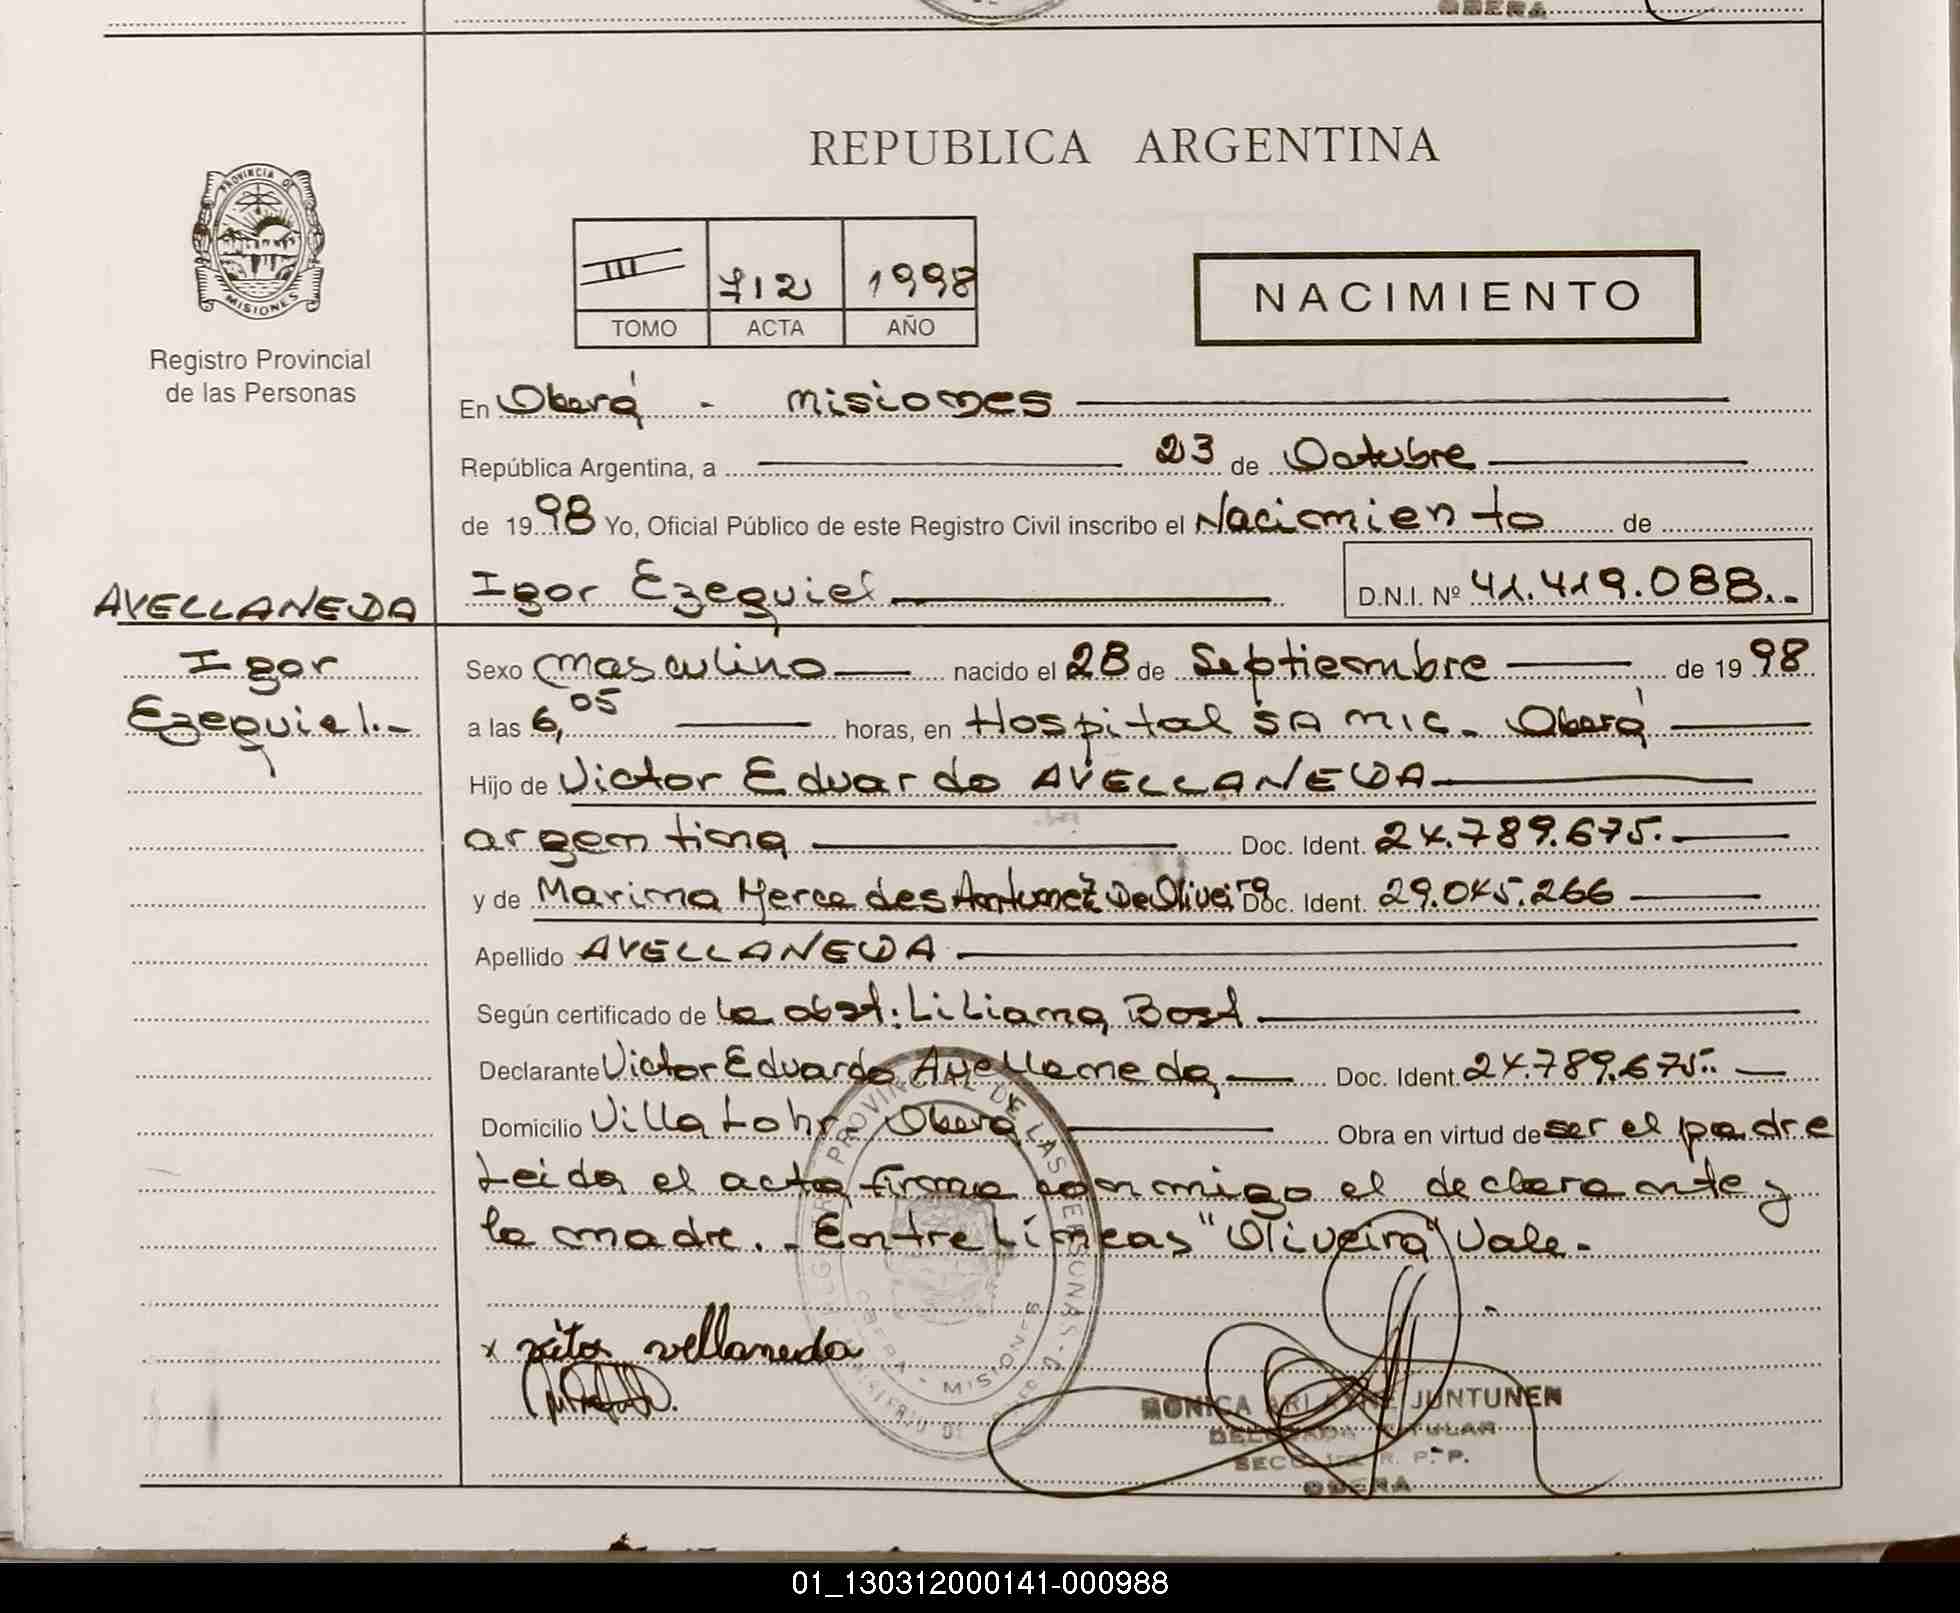 OBERA
REPUBLICA ARGENTINA
PROVINCIA DE
MISIONES
Registro Provincial
de las Personas
III 712 1998
TOMO ACTA AÑO
NACIMIENTO
En Oberá - Misiones
República Argentina, a 23 de Octubre
de 1998 Yo, Oficial Público de este Registro Civil inscribo el Nacimiento de
AVELLANEDA Igor Ezequiel D.N.I. Nº 41.419.088.-
Igor Sexo Masculino nacido el 28 de Septiembre de 1998
Ezequiel.- a las 6,05 horas, en Hospital SAMIC - Oberá
Hijo de Victor Eduardo AVELLANEDA
argentina Doc. Ident. 24.789.675.
y de Marina Mercedes Antunez De Oliveira Doc. Ident. 29.045.266
Apellido AVELLANEDA
Según certificado de la obst: Liliana Bost
Declarante Victor Eduardo Avellaneda Doc. Ident. 24.789.675.
Domicilio Villa Lohr - Oberá Obra en virtud de ser el padre
Leida el acta, firma conmigo el declarante y
la madre. - Entre Líneas "Oliveira" Vale.
PROVINCIAL DE LAS PERSONAS
OBERA - MISIONES
x vellaneda
MONICA JUNTUNEN
R. P. P.
OBERA
01_130312000141-000988